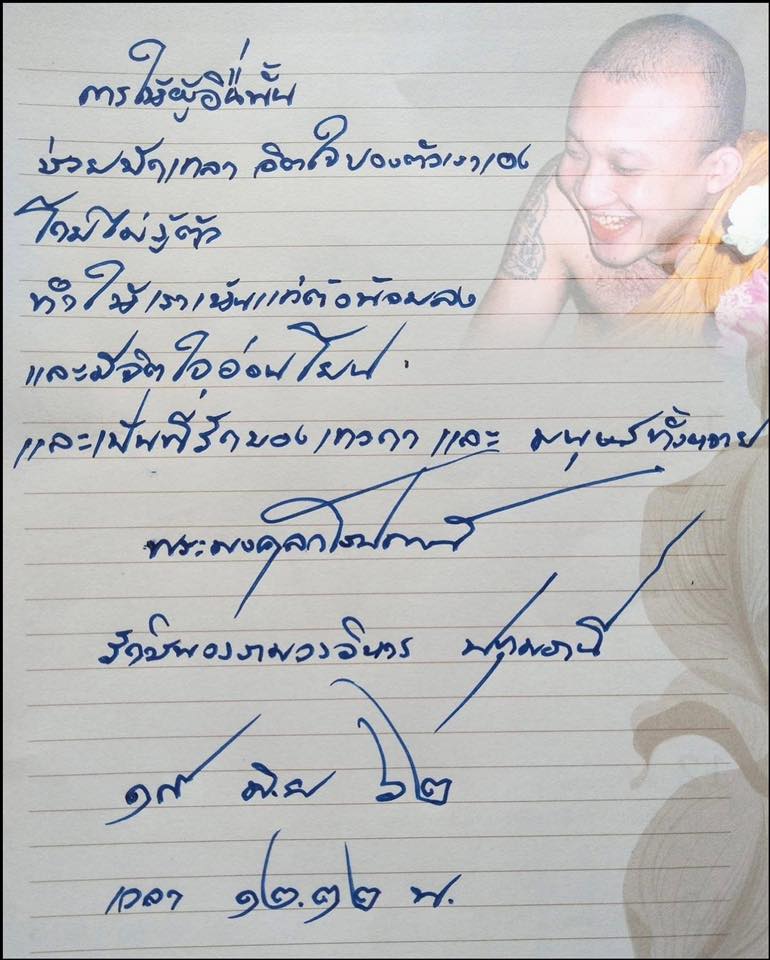 การให้ผู้อื่นนั้น
ช่วยขัดเกลา จิตใจของตัวเราเอง
โดยไม่รู้ตัว
ทำให้เราเห็นแก่ตัวน้อยลง
และมีจิตใจอ่อนโยน
และเป็นที่รักของ เทวดา และ มนุษย์ทั้งหลาย
พระมงคล
วัดชิ วรวิหาร ปทุมธานี
๑๙ มิ.ย ๖๒
เวลา ๑๒.๓๒ น.